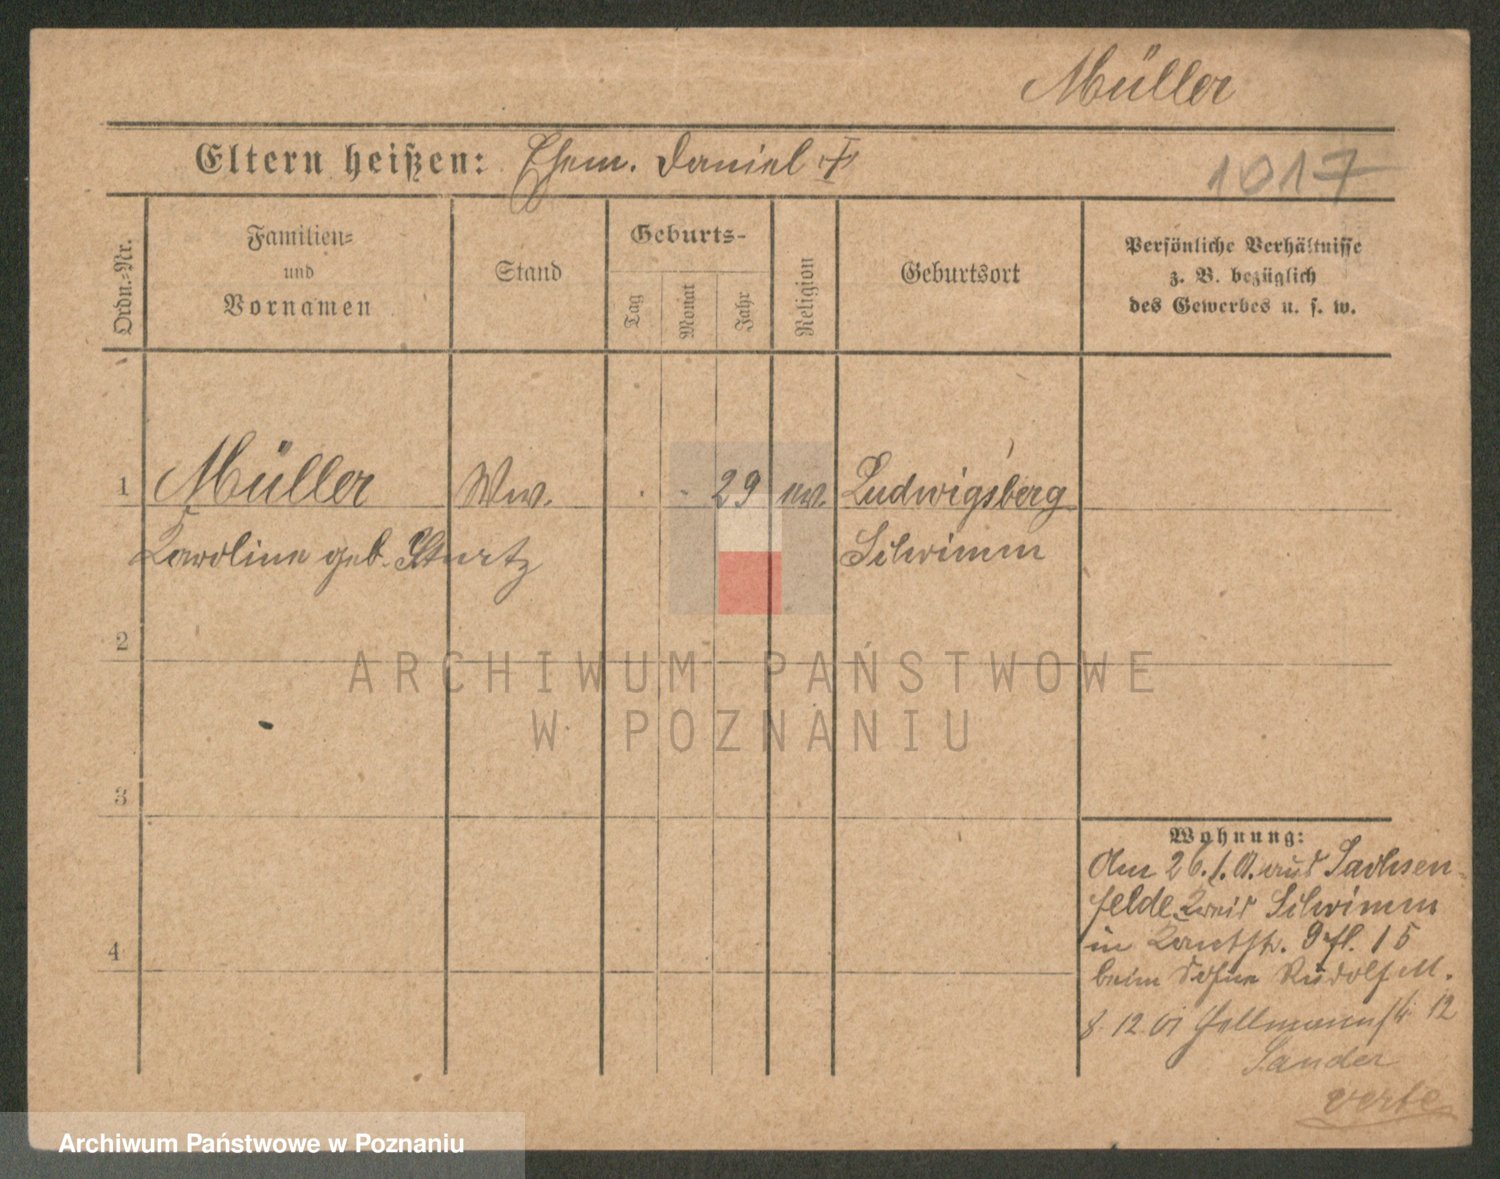 Müller
Eltern heißen: Ehem. Daniel †
1017
Ordn.-Nr.
Familien-
und
Vornamen
Stand
Geburts-
Tag
Monat
Jahr
Religion
Geburtsort
Persönliche Verhältnisse
z. B. bezüglich
des Gewerbes u. s. w.
1 Müller Ww. 29 ev. Ludwigsberg
Karoline geb. Sturtz Schrimm
2
ARCHIWUM PAŃSTWOWE
W POZNANIU
3
Wohnung:
Am 26. 1. 0. aus Sachsen-
felde Kreis Schrimm
in 15
4
beim Sohne Rudolf M.
8. 12 01 12
Sander
Archiwum Państwowe w Poznaniu